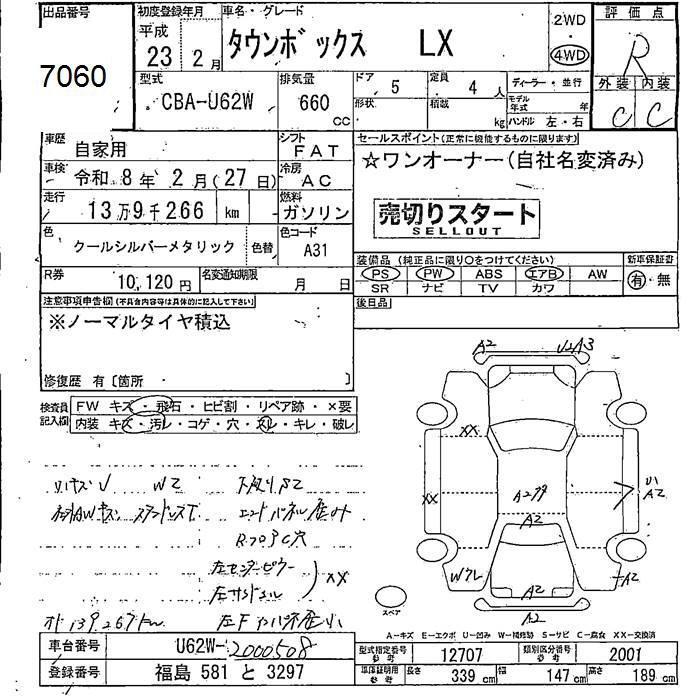 出品番号 初度登録年月 車名・グレード 2WD 評価点
7060 平成 23 2月 タウンボックス LX ・ 4WD R
型式 CBA-U62W 排気量 660 cc ドア 5 定員 4人 ディーラー・並行 外装 内装
形状 積載 kg モデル年式 年 ハンドル 左・右 C C
車歴 自家用 シフト FAT セールスポイント(正常に機能するものに限ります)
車検 令和 8年 2月(27日) 冷房 AC ☆ワンオーナー(自社名変済み)
走行 13万9千266 km 燃料 ガソリン 売切りスタート
SELLOUT
色 クールシルバーメタリック 色替 色コード A31
装備品(純正品に限り○をつけてください) 新車保証書
R券 10,120円 名変通知期限 月 日 PS PW ABS エアB AW 有・無
SR ナビ TV カワ
注意事項申告欄(不具合内容等は具体的に記入して下さい) 後日品
※ノーマルタイヤ積込
修復歴 有〔箇所 〕
A2 U2 A3
検査員記入欄 FW キズ・飛石・ヒビ割・リペア跡・×要
内装 キズ・汚レ・コゲ・穴・スレ・キレ・破レ
XX
XX A2 A2
A2
W2 下廻りS2
エンドパネル歪み
RフロアC穴
左センターピラー
左サイドシル XX
A2 A2
スペア A2
A-キズ E-エクボ U-凹み W-補修跡 S-サビ C-腐食 XX-交換済
車台番号 U62W-2000508 型式指定番号 参考 12707 類別区分番号 参考 2001
登録番号 福島 581 と 3297 車庫証明用 参考 長さ 339 cm 幅 147 cm 高さ 189 cm